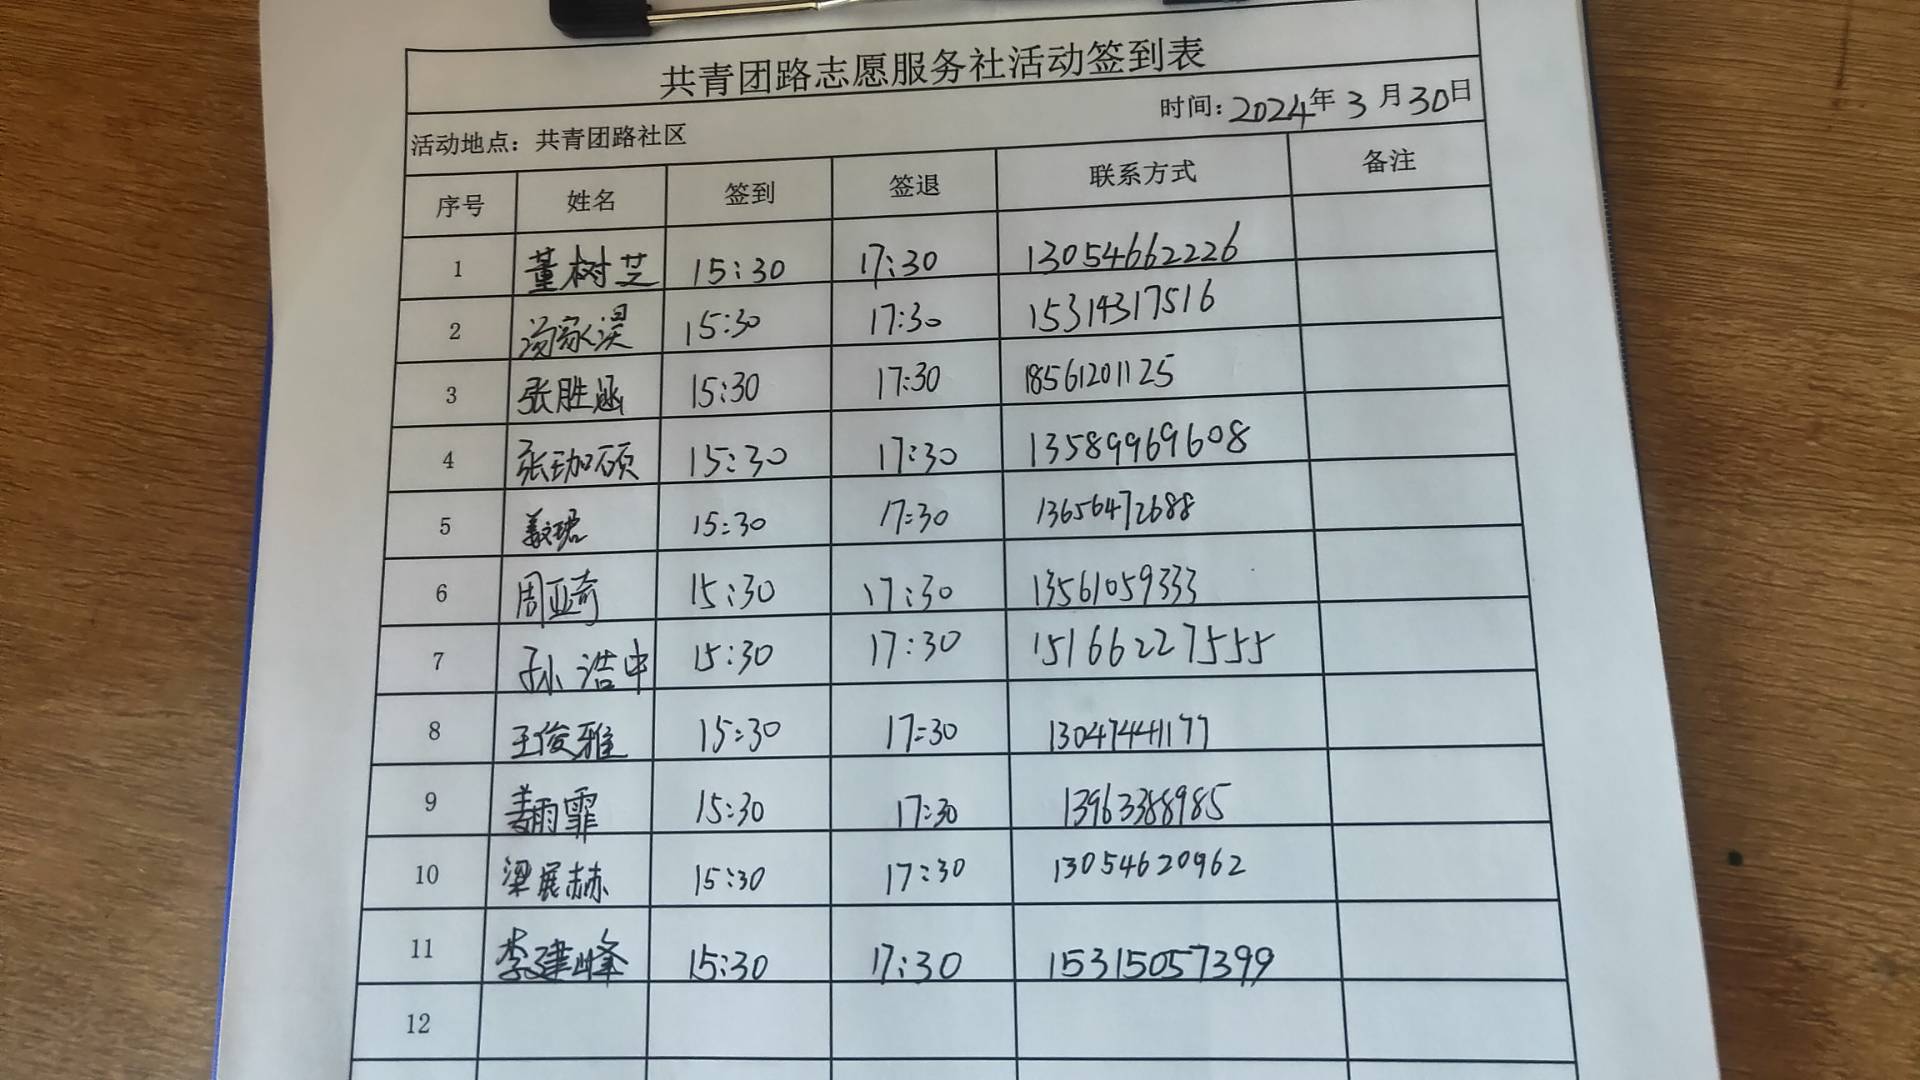 共青团路志愿服务社活动签到表
时间: 2024年 3 月 30日
活动地点: 共青团路社区
序号 姓名 签到 签退 联系方式 备注
1 董树芝 15:30 17:30 13054662226
2 汤家淏 15:30 17:30 15314317516
3 张胜涵 15:30 17:30 18561201125
4 张珈硕 15:30 17:30 13589969608
5 姜文珺 15:30 17:30 13656472688
6 周亚奇 15:30 17:30 13561059333
7 孙浩中 15:30 17:30 15166227555
8 王俊雅 15:30 17:30 13047444177
9 姜雨霏 15:30 17:30 13963388985
10 梁展赫 15:30 17:30 13054620962
11 李建峰 15:30 17:30 15315057399
12